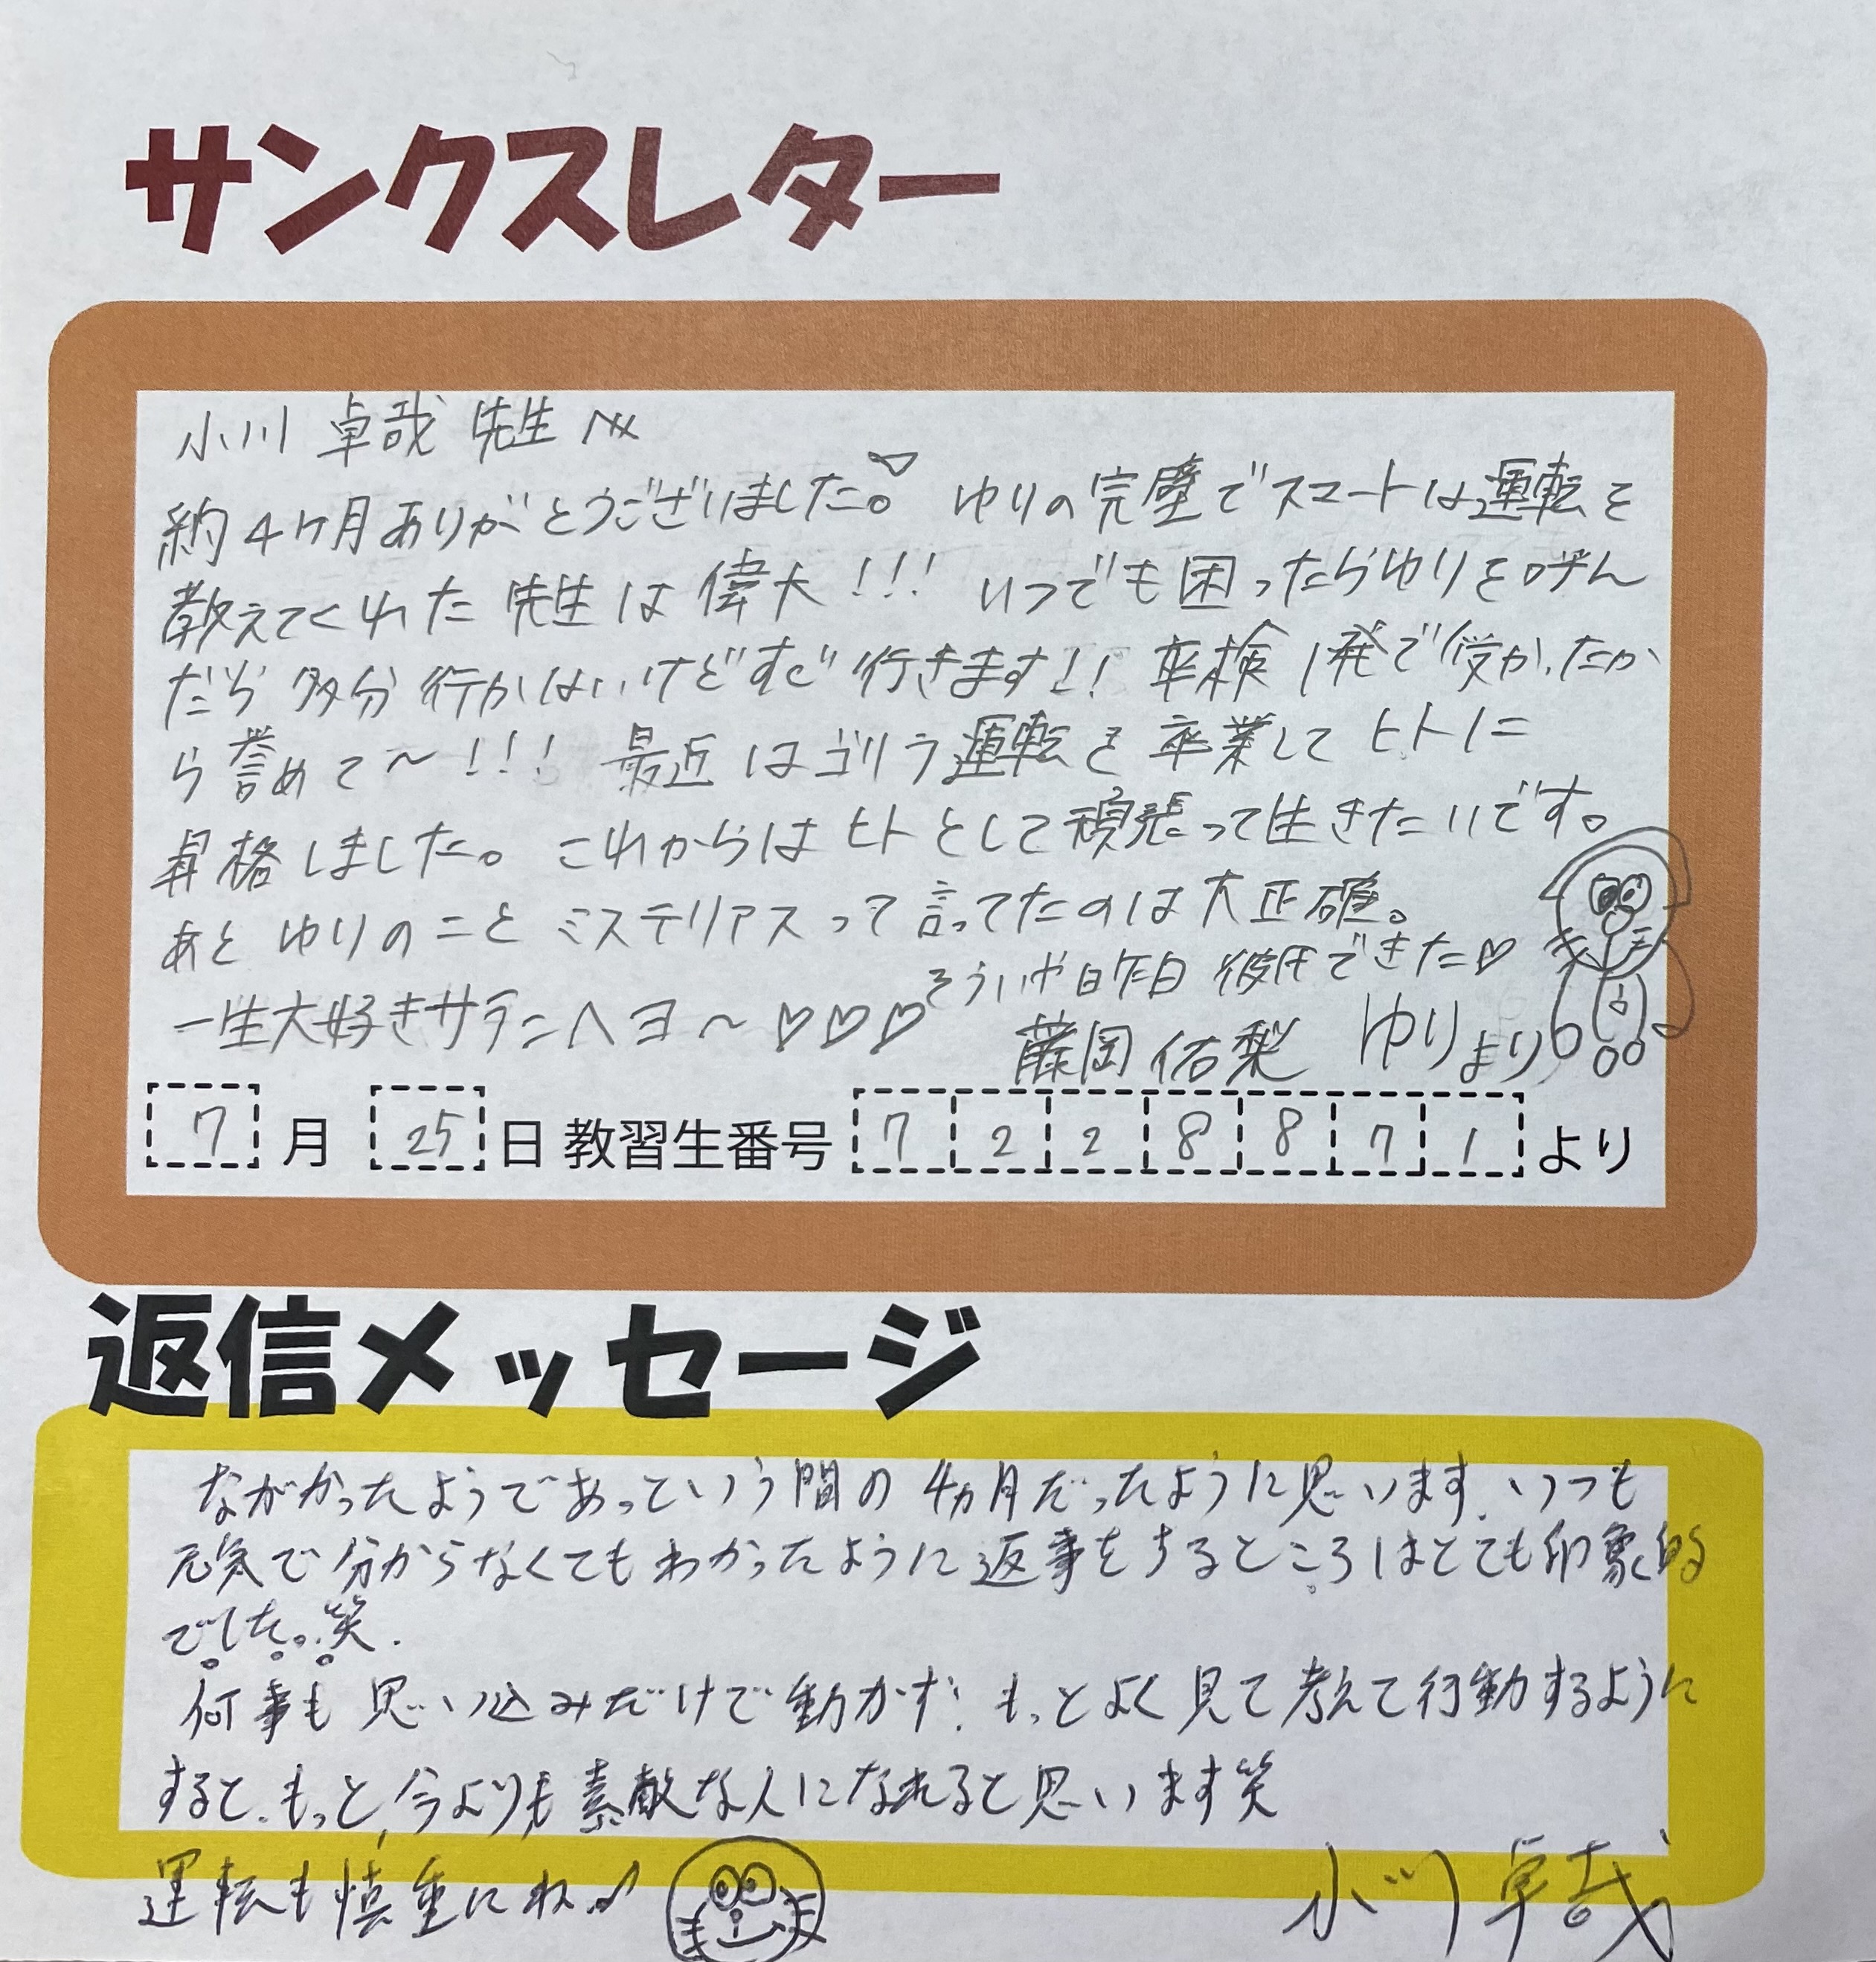 サンクスレター
小川 卓哉 先生へ
約4ヶ月ありがとうございました。♡ ゆりの完璧でスマートな運転を
教えてくれた先生は偉大!!! いつでも困ったらゆりを呼ん
だら多分行かないけどすぐ行きます!! 卒検1発で受かったか
ら誉めて〜!!! 最近はゴリラ運転を卒業してヒトに
昇格しました。これからはヒトとして頑張って生きたいです。
あとゆりのことミステリアスって言ってたのは大正確。
そういや昨日彼氏できた♡
一生大好きサラニヘヨ〜♡♡♡
藤岡 佑梨 ゆりより
7月 25日 教習生番号 7228871 より
返信メッセージ
ながかったようであっという間の4ヵ月だったように思います。いつも
元気で分からなくてもわかったように返事をするところはとても印象的
でした。笑.
何事も思い込みだけで動かず! もっとよく見て考えて行動するように
すると、もっと、今よりも素敵な人になれると思います笑
運転も慎重にね♪
小川 卓哉